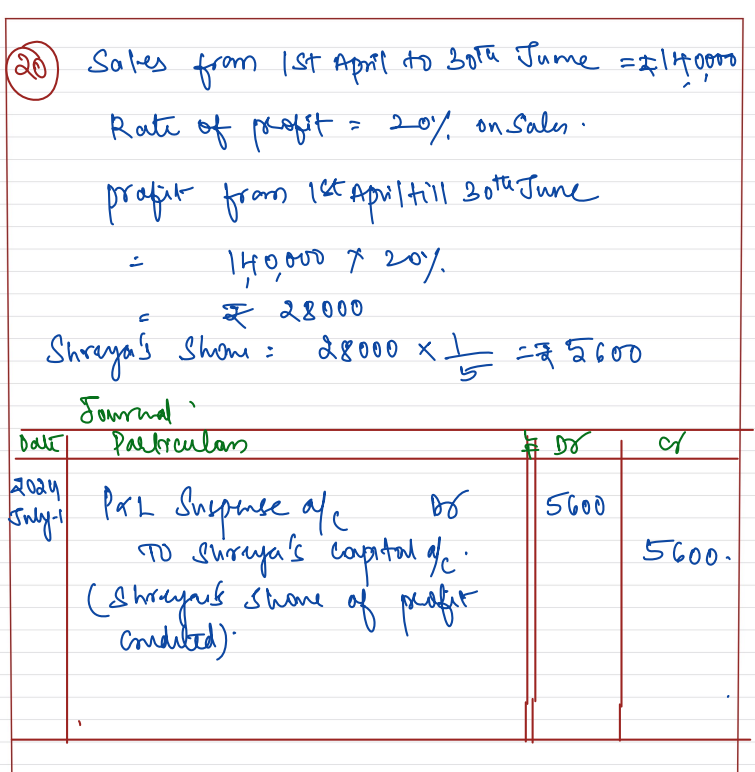 20 Sales from 1st April to 30th June = ₹1,40,000
Rate of profit = 20% on Sales.
profit from 1st April till 30th June
= 1,40,000 × 20%
= ₹ 28000
Shreya's Share = 28000 × 1/5 = ₹ 5600
Journal
Date Particulars Dr Cr
2024
July-1 P&L Suspense a/c Dr 5600
To Shreya's capital a/c. 5600.
(Shreya's share of profit
credited).